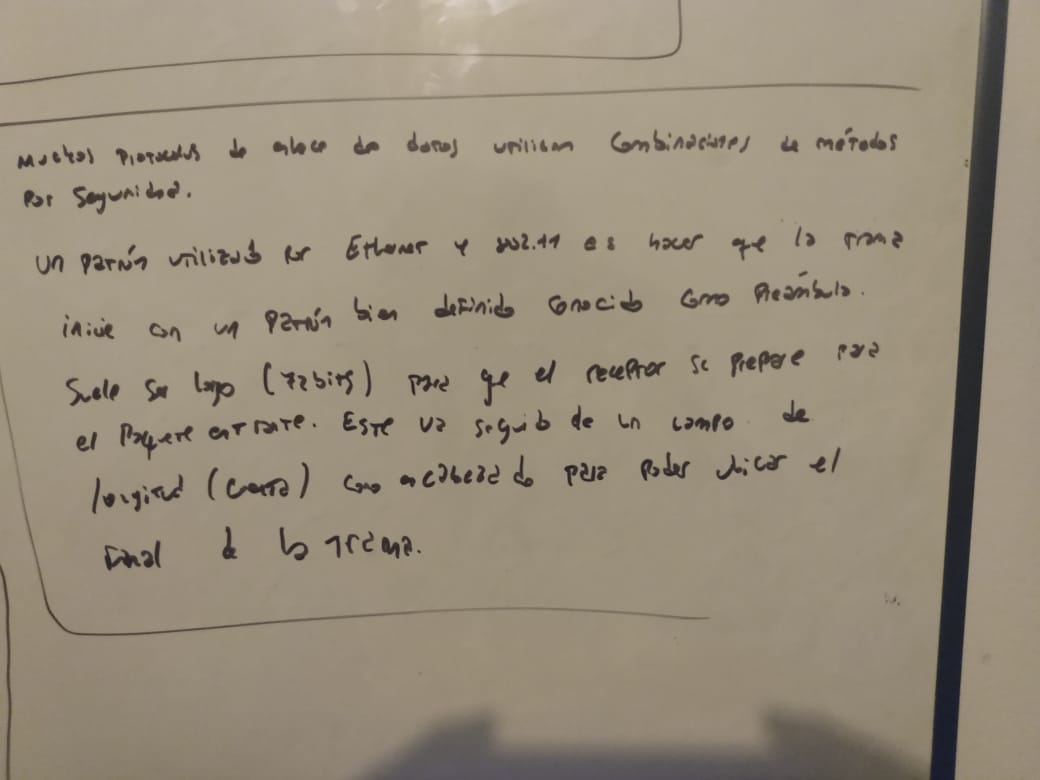 Muchos Protocolos de enlace de datos utilizan Combinaciones de métodos
Por Seguridad.
Un Patrón utilizado por Ethernet y 802.11 es hacer que la trama
inicie con un Patrón bien definido Conocido Como Preámbulo.
Suele Ser largo (72bits) para que el receptor se Prepare para
el Paquete entrante. Este va seguido de un campo de
longitud (cuenta) como encabezado para poder ubicar el
Final de la Trama.